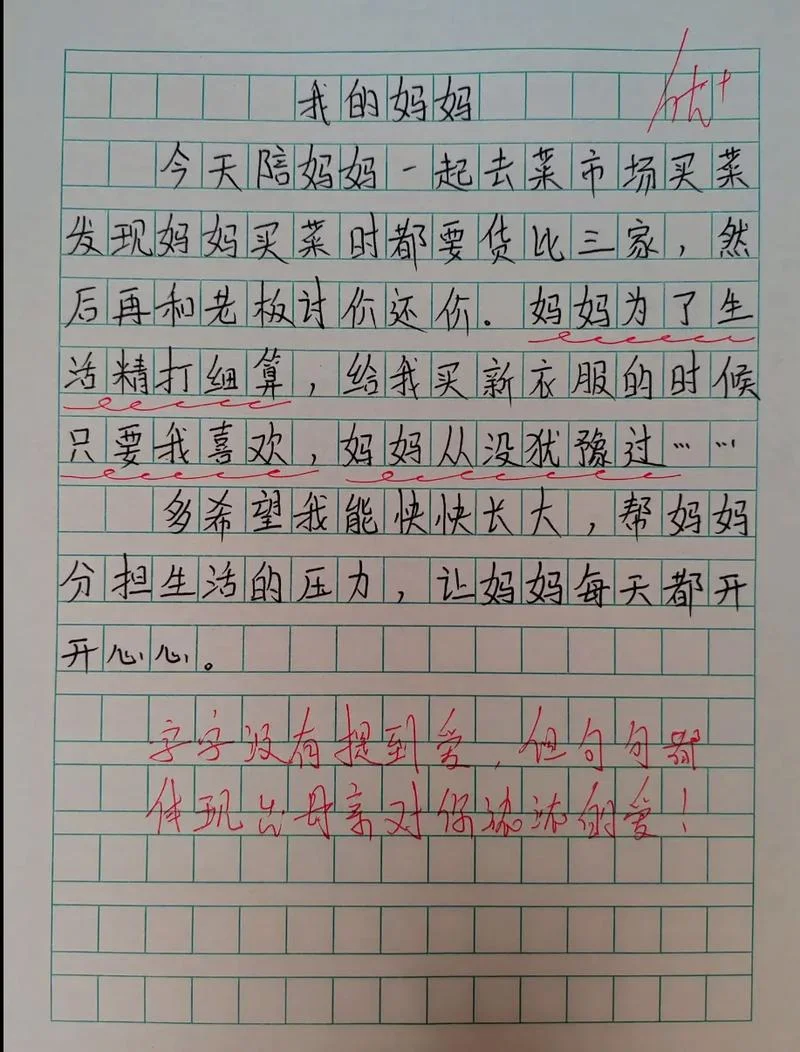 我的妈妈
优+
今天陪妈妈一起去菜市场买菜
发现妈妈买菜时都要货比三家，然
后再和老板讨价还价．妈妈为了生
活精打细算，给我买新衣服的时候
只要我喜欢，妈妈从没犹豫过……
多希望我能快快长大，帮妈妈
分担生活的压力，让妈妈每天都开
开心心。
字字没有提到爱，但句句都
体现出母亲对你浓浓的爱！